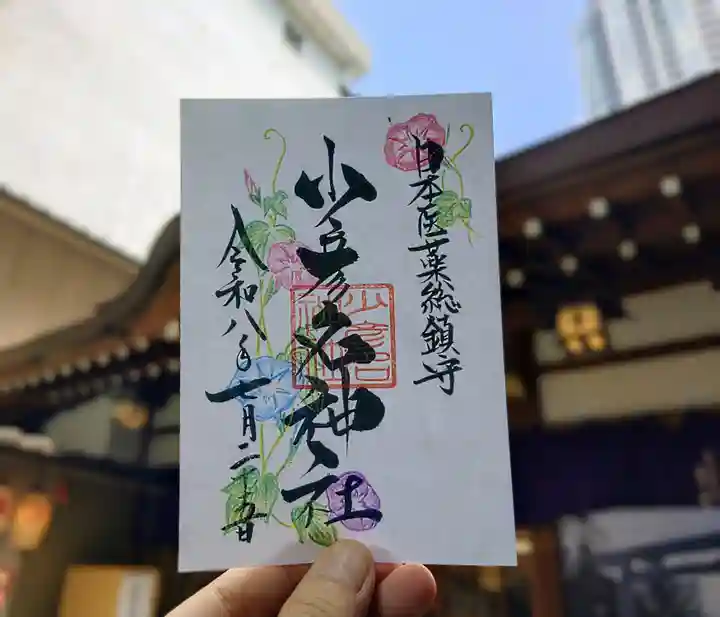 日本医薬総鎮守
少彦名神社
少彦名
神社
令和八年七月二十五日